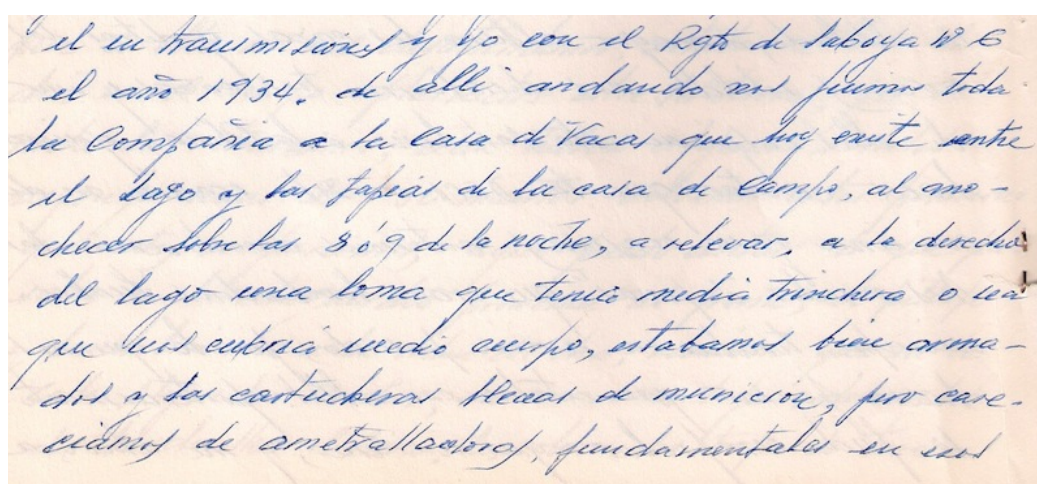 el en transmisiones y yo con el Rgto de Saboya Nº 6
el año 1934. de alli andando nos fuimos toda
la Compañia a la Casa de Vacas que hoy existe entre
el Lago y las tapias de la casa de Campo, al ano-
checer sobre las 8 ó 9 de la noche, a relevar, a la derecha
del lago una loma que tenia media trinchera o sea
que nos cubria medio cuerpo, estabamos bien arma-
dos y las cartucheras llenas de munición, pero care-
ciamos de ametralladoras, fundamentales en esos